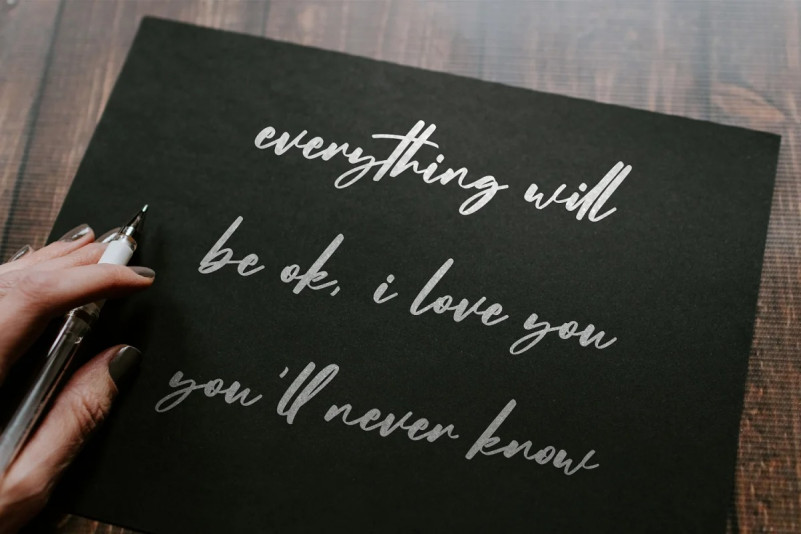 everything will
be ok, i love you
you'll never know